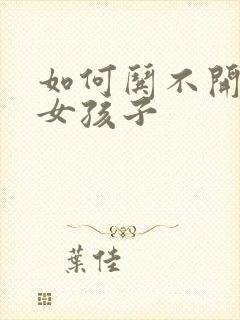 如何鬨不開
女孩子
葉佳